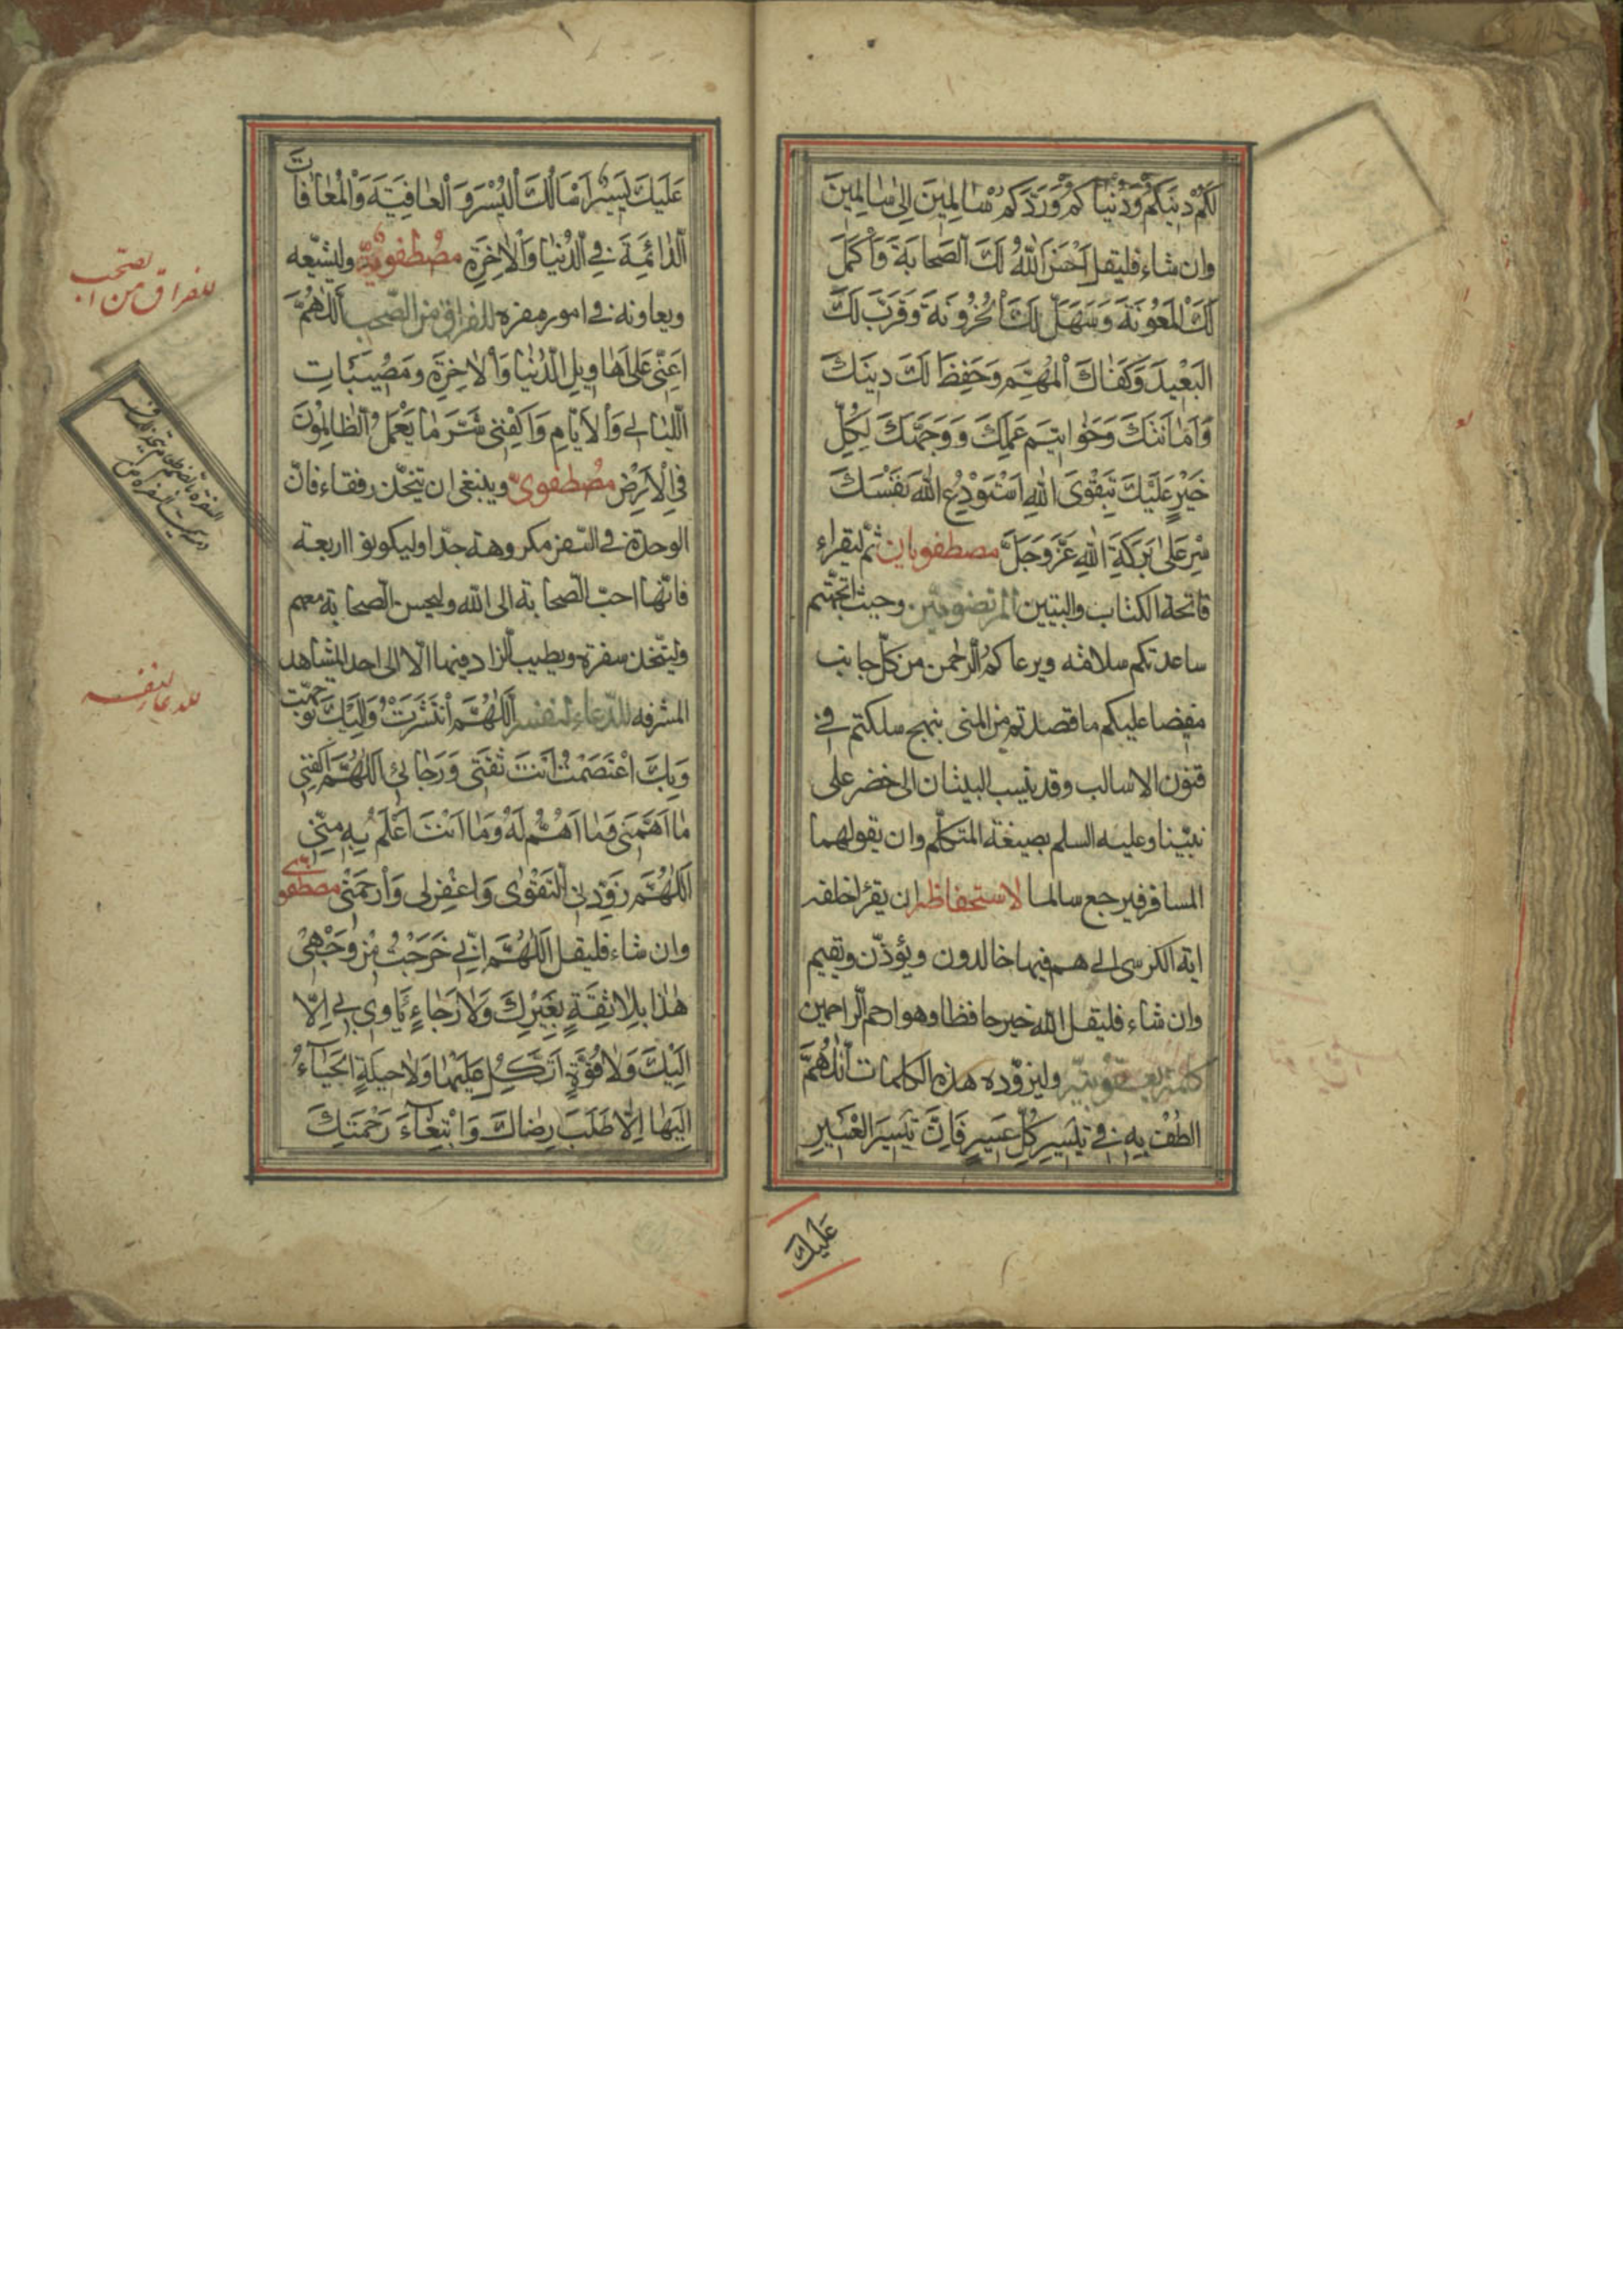 لَكُمْ دِينَكُمْ وَدُنْيَاكُمْ وَرَدَّكُمْ سَالِمِينَ اِلىٰ سَالِمِينَ
وان شاء فليقل اَحْسَنَ اللّٰهُ لَكَ الصَّحَابَةَ وَاَكْمَلَ
لَكَ الْمَعُونَةَ وَسَهَّلَ لَكَ الْحُزُونَةَ وَقَرَّبَ لَكَ
الْبَعِيدَ وَكَفَاكَ الْمُهِمَّ وَحَفِظَ لَكَ دِينَكَ
وَاَمَانَتَكَ وَخَوَاتِيمَ عَمَلِكَ وَوَجَّهَكَ لِكُلِّ
خَيْرٍ عَلَيْكَ بِتَقْوَى اللّٰهِ اَسْتَوْدِعُ اللّٰهَ نَفْسَكَ
سِرْ عَلىٰ بَرَكَةِ اللّٰهِ عَزَّ وَجَلَّ مصطفويان ثم ليقراء
فاتحة الكتاب والبيتين المرتضويين وحيث اتجهتم
ساعدتكم سلامة ويرعاكم الرحمن من كل جانب
مفضا عليكم ما قصدتم من المنى بنهج سلكتم في
فنون الاسالب وقد ينسب البيتان الى خضر على
نبينا وعليه السلم بصيغة المتكلم وان يقولهما
المسافر فيرجع سالما لاستحفاظه ان يقرا خلفه
اية الكرسى الى هم فيها خالدون ويؤذن ويقيم
وان شاء فليقل الله خير حافظا وهو ارحم الراحمين
وليزوده هذه الكلمات اَللّٰهُمَّ
الْطُفْ بِهِ فِي تَيْسِيرِ كُلِّ عَسِيرٍ فَاِنَّ تَيْسِيرَ الْعَسِيرِ
عَلَيْكَ
عَلَيْكَ يَسِيرٌ اَسْاَلُكَ الْيُسْرَ وَالْعَافِيَةَ وَالْمُعَافَاتَ
الدَّائِمَةَ فِي الدُّنْيَا وَالْاٰخِرَةِ مصطفوية وليشيعه
ويعاونه في امور سفره للفراق من الصحب اَللّٰهُمَّ
اَعِنِّي عَلىٰ اَهَاوِيلِ الدُّنْيَا وَالْاٰخِرَةِ وَمُصِيبَاتِ
اللَّيَالِي وَالْاَيَّامِ وَاكْفِنِي شَرَّ مَا يَعْمَلُ الظَّالِمُونَ
فِي الْاَرْضِ مصطفوى وينبغى ان يتخذ رفقاء فان
الوحدة في السفر مكروهة جدا وليكونوا اربعة
فانها احب الصحابة الى الله وليحسن الصحابة معهم
وليتخذ سفرة ويطيب الزاد فيها الا الى احد المشاهد
المشرفة للدعاء لنفسه اَللّٰهُمَّ انْتَشَرْتُ وَاِلَيْكَ تَوَجَّهْتُ
وَبِكَ اعْتَصَمْتُ اَنْتَ ثِقَتِي وَرَجَائِي اَللّٰهُمَّ اكْفِنِي
مَا اَهَمَّنِي وَمَا اَهْتَمُّ لَهُ وَمَا اَنْتَ اَعْلَمُ بِهِ مِنِّي
اَللّٰهُمَّ زَوِّدْنِي التَّقْوٰى وَاغْفِرْ لِي وَارْحَمْنِي مصطفوى
وان شاء فليقل اَللّٰهُمَّ اِنِّي خَرَجْتُ مِنْ وَجْهِي
هٰذَا بِلَا ثِقَةٍ بِغَيْرِكَ وَلَا رَجَاءٍ يَاْوِي بِي اِلَّا
اِلَيْكَ وَلَا قُوَّةٍ اَتَّكِلُ عَلَيْهَا وَلَا حِيلَةٍ اَلْجَاءُ
اِلَيْهَا اِلَّا طَلَبَ رِضَاكَ وَابْتِغَاءَ رَحْمَتِكَ
للفراق من الصحب
للدعاء لنفسه